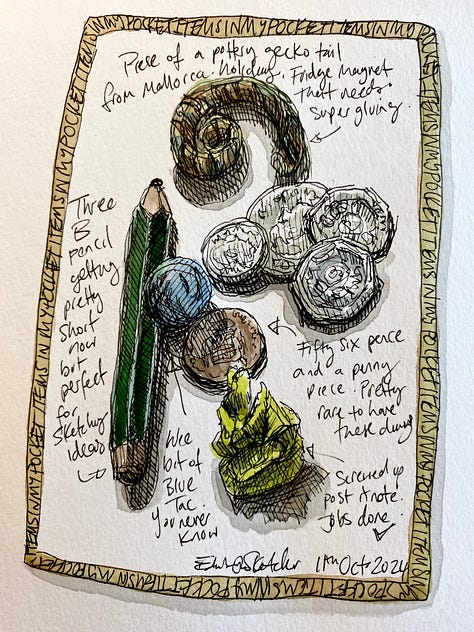 ITEMS IN MY POCKET ITEMS IN MY POCKET ITEMS IN MY POCKET
Piece of a pottery gecko tail
from Mallorca holiday. Fridge magnet
that needs
super gluing.
Three
B
pencil
getting
pretty
short
now
but
perfect
for
sketchy
ideas
Wee
bit of
Blue
Tac.
You never
know
Fifty six pence
and a penny
piece. Pretty
rare to have
these days
Screwed up
post it note.
Jobs done.
11th Oct 2024